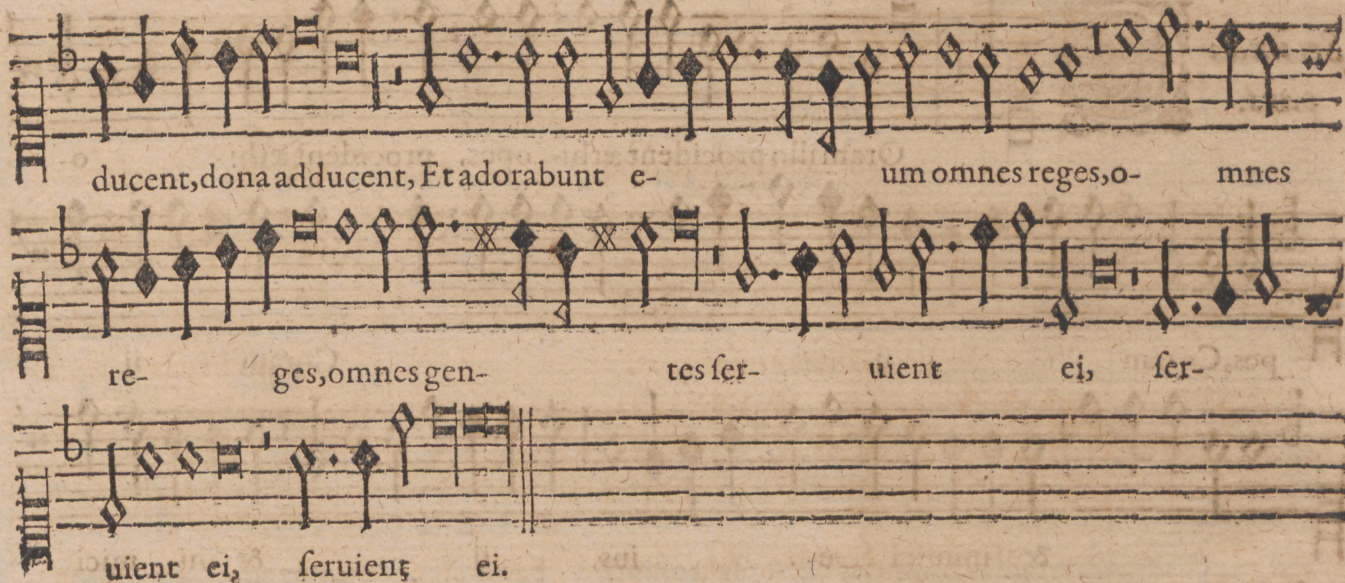 ducent, dona adducent, Et adorabunt e- um omnes reges, o- mnes
re- ges, omnes gen- tes ſer- uient ei, ſer-
uient ei, ſeruient ei.